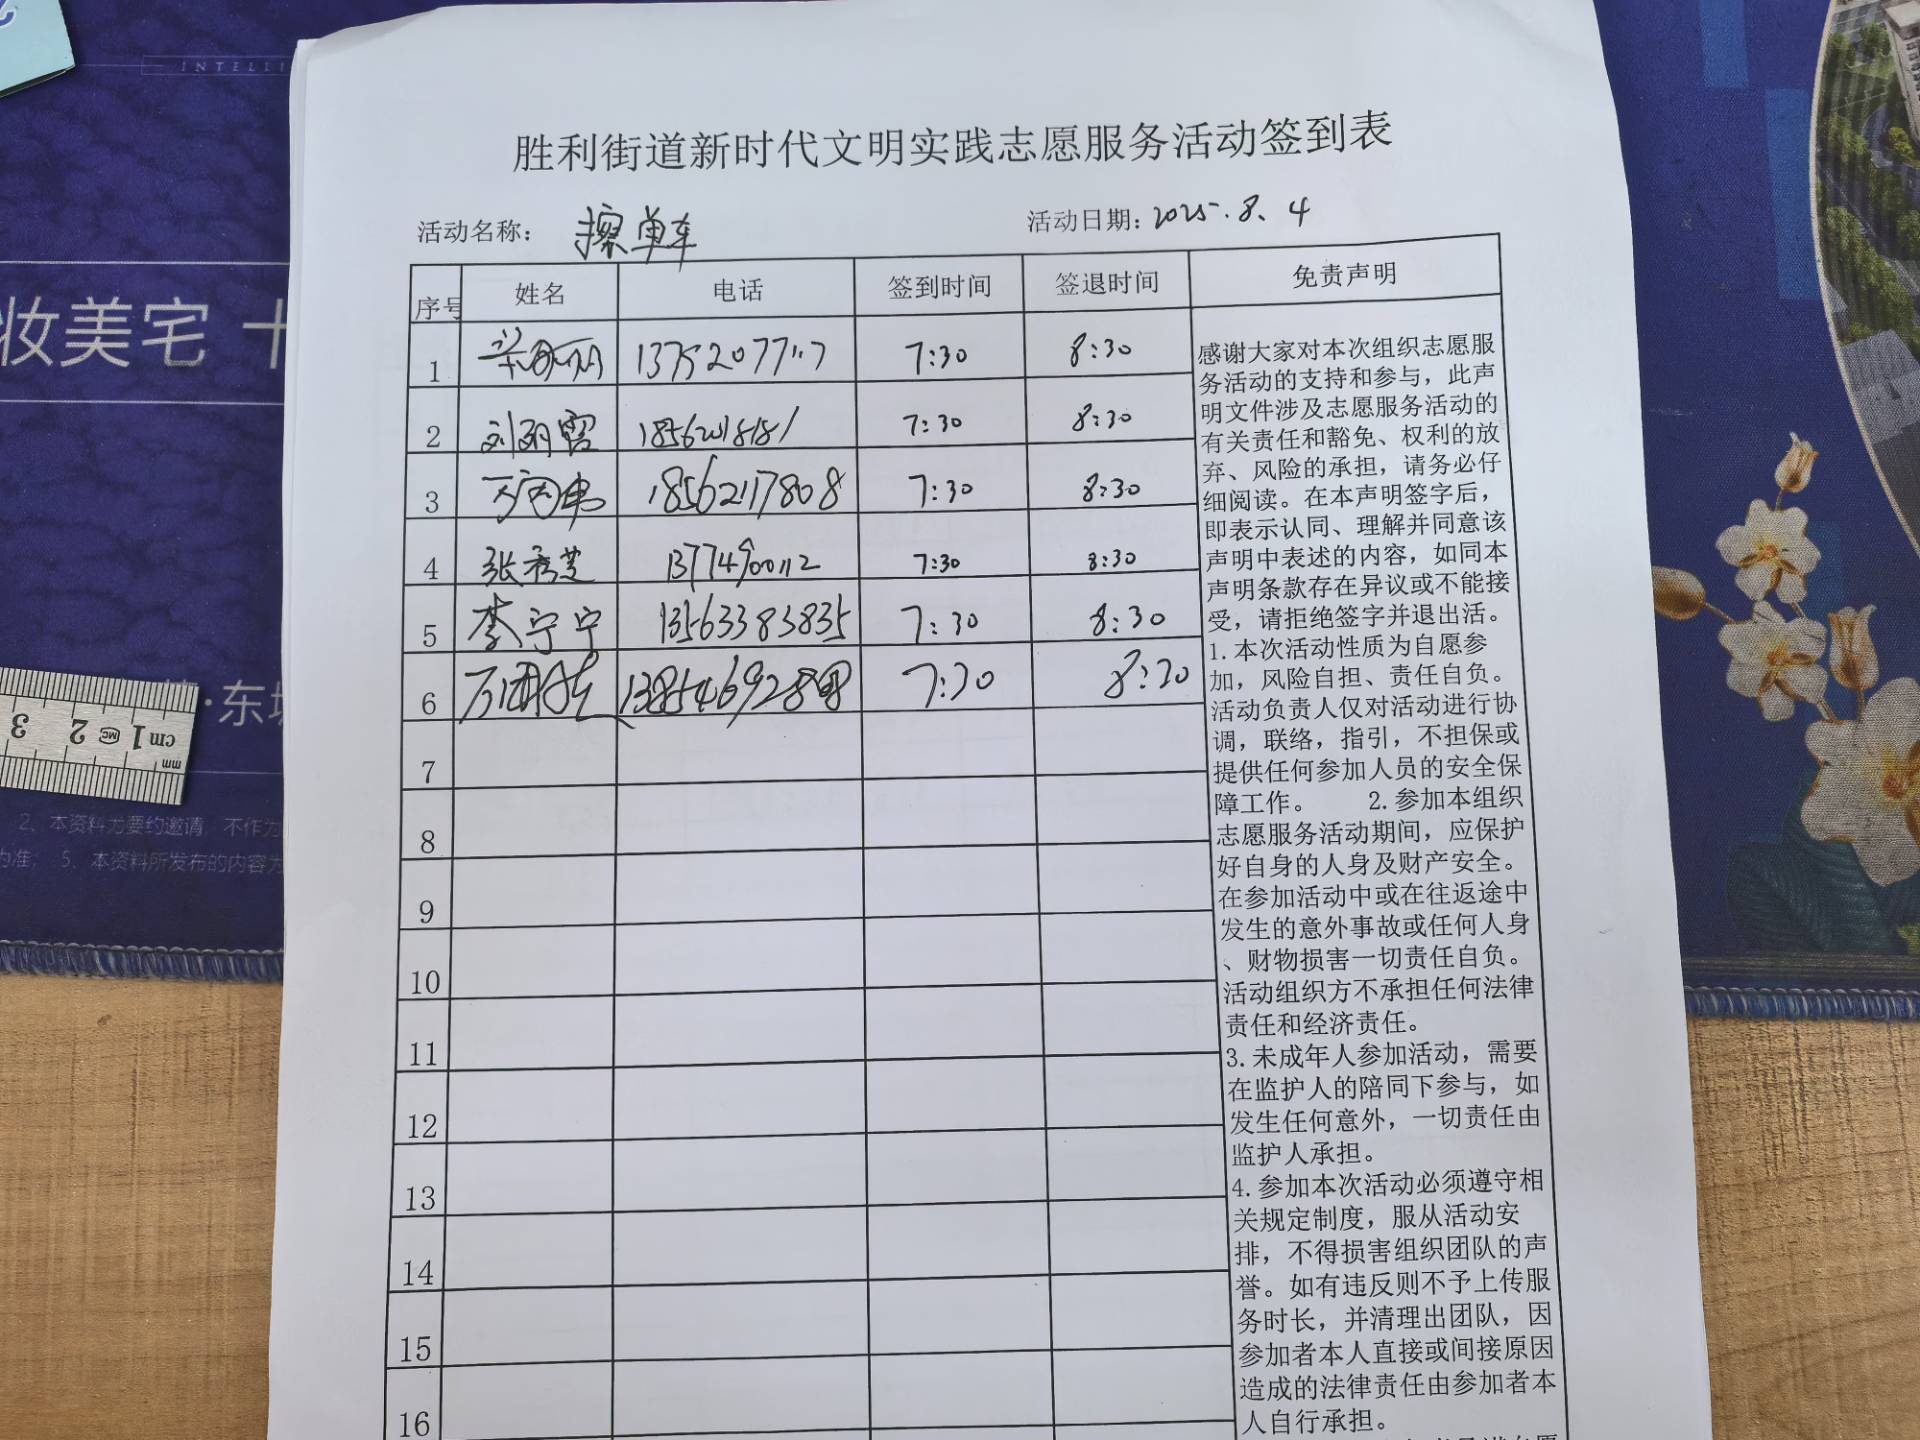 INTELLI
妆美宅 十
·东城
2、本资料为要约邀请，不作为
为准； 5、本资料所发布的内容为
3 2 1 cm
mm
胜利街道新时代文明实践志愿服务活动签到表
活动名称： 擦单车 活动日期：2025.8.4
序号 姓名 电话 签到时间 签退时间 免责声明
1 7:30 8:30
2 刘丽霞 7:30 8:30
3 18562117808 7:30 8:30
4 张秀芝 13774900112 7:30 8:30
5 李宁宁 13563383835 7:30 8:30
6 7:30 8:30
7
8
9
10
11
12
13
14
15
16
感谢大家对本次组织志愿服
务活动的支持和参与，此声
明文件涉及志愿服务活动的
有关责任和豁免、权利的放
弃、风险的承担，请务必仔
细阅读。在本声明签字后，
即表示认同、理解并同意该
声明中表述的内容，如同本
声明条款存在异议或不能接
受，请拒绝签字并退出活。
1.本次活动性质为自愿参
加，风险自担、责任自负。
活动负责人仅对活动进行协
调，联络，指引，不担保或
提供任何参加人员的安全保
障工作。 2.参加本组织
志愿服务活动期间，应保护
好自身的人身及财产安全。
在参加活动中或在往返途中
发生的意外事故或任何人身
、财物损害一切责任自负。
活动组织方不承担任何法律
责任和经济责任。
3.未成年人参加活动，需要
在监护人的陪同下参与，如
发生任何意外，一切责任由
监护人承担。
4.参加本次活动必须遵守相
关规定制度，服从活动安
排，不得损害组织团队的声
誉。如有违反则不予上传服
务时长，并清理出团队，因
参加者本人直接或间接原因
造成的法律责任由参加者本
人自行承担。